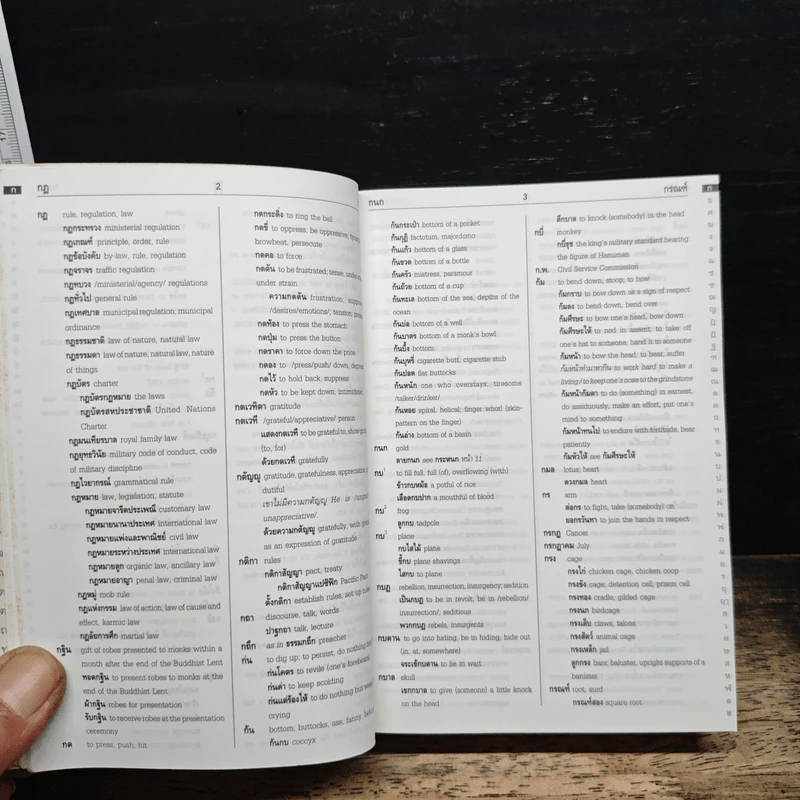 ก กฏ 2
กฎ rule, regulation, law
กฎกระทรวง ministerial regulation
กฎเกณฑ์ principle, order, rule
กฎข้อบังคับ by-law, rule, regulation
กฎจราจร traffic regulation
กฎทบวง /ministerial/agency/ regulations
กฎทั่วไป general rule
กฎเทศบาล municipal regulation; municipal
ordinance
กฎธรรมชาติ law of nature, natural law
กฎธรรมดา law of nature, natural law, nature
of things
กฎบัตร charter
กฎบัตรกฎหมาย the laws
กฎบัตรสหประชาชาติ United Nations
Charter
กฎมนเทียรบาล royal family law
กฎยุทธวินัย military code of conduct, code
of military discipline
กฎไวยากรณ์ grammatical rule
กฎหมาย law, legislation, statute
กฎหมายจารีตประเพณี customary law
กฎหมายนานาประเทศ international law
กฎหมายแพ่งและพาณิชย์ civil law
กฎหมายระหว่างประเทศ international law
กฎหมายลูก organic law, ancillary law
กฎหมายอาญา penal law, criminal law
กฎหมู่ mob rule
กฎแห่งกรรม law of action, law of cause and
effect, karmic law
กฎอัยการศึก martial law
กฐิน gift of robes presented to monks within a
month after the end of the Buddhist Lent
ทอดกฐิน to present robes to monks at the
end of the Buddhist Lent
ผ้ากฐิน robes for presentation
รับกฐิน to receive robes at the presentation
ceremony
กด to press, push, hit
กดกระดิ่ง to ring the bell
กดขี่ to oppress, be oppressive;
browbeat, persecute
กดคอ to force
กดดัน to be frustrated; tense, under
under strain
ความกดดัน frustration,
/desires/emotions/, tension,
กดท้อง to press the stomach
กดปุ่ม to press the button
กดราคา to force down the price
กดลง to /press/push/ down,
กดไว้ to hold back, suppress
กดหัว to be kept down,
กตเวทิตา gratitude
กตเวที /grateful/appreciative/ person
แสดงกตเวที to be grateful to, show
(to, for)
ด้วยกตเวที gratefully
กตัญญู gratitude, gratefulness,
dutiful
เขาไม่มีความกตัญญู He is
unappreciative/.
ด้วยความกตัญญู gratefully, with
as an expression of gratitude
กติกา rules
กติกาสัญญา pact, treaty
กติกาสัญญาแปซิฟิก Pacific Pact
ตั้งกติกา establish rules, set up rules
กถา discourse, talk, words
ปาฐกถา talk, lecture
กถึก as in ธรรมกถึก preacher
ก่น to dig up; to persist, do nothing
ก่นโคตร to revile (one's forebears)
ก่นด่า to keep scolding
ก่นแต่ร้องไห้ to do nothing but
crying
ก้น bottom; buttocks, ass, fanny,
ก้นกบ coccyx
กนก 3 กรณฑ์ ก
ก้นกระเป๋า bottom of a pocket
ก้นกุฏิ factotum, majordomo
ก้นแก้ว bottom of a glass
ก้นขวด bottom of a bottle
ก้นครัว mistress, paramour
ก้นถ้วย bottom of a cup
ก้นทะเล bottom of the sea, depths of the
ocean
ก้นบ่อ bottom of a well
ก้นบาตร bottom of a monk's bowl
ก้นบึ้ง bottom
ก้นบุหรี่ cigarette butt, cigarette stub
ก้นปอด flat buttocks
ก้นหนัก one who overstays; tiresome
/talker/drinker/
ก้นหอย spiral, helical; finger whorl (skin-
pattern on the finger)
ก้นอ่าง bottom of a basin
กนก gold
ลายกนก see กระหนก หน้า 11
กบ¹ to fill full; full (of), overflowing (with)
ข้าวกบหม้อ a potful of rice
เลือดกบปาก a mouthful of blood
กบ² frog
ลูกกบ tadpole
กบ³ plane
กบไสไม้ plane
ขี้กบ plane shavings
ไสกบ to plane
กบฏ rebellion, insurrection, insurgency; sedition
เป็นกบฏ to be in revolt, be in /rebellion/
insurrection/; seditious
พวกกบฏ rebels, insurgents
กบดาน to go into hiding, be in hiding, hide out
(in, at, somewhere)
จระเข้กบดาน to lie in wait
กบาล skull
เขกกบาล to give (someone) a little knock
on the head
ตีกบาล to knock (somebody) in the head
กบี่ monkey
กบี่ธุช the king's military standard bearing
the figure of Hanuman
ก.พ. Civil Service Commission
ก้ม to bend down, stoop; to bow
ก้มกราบ to bow down as a sign of respect
ก้มลง to bend down, bend over
ก้มศีรษะ to bow one's head, bow down
ก้มศีรษะให้ to nod in assent; to take off
one's hat to someone, hand it to someone
ก้มหน้า to bow the head; to bear, suffer
ก้มหน้าทำมาหากิน to work hard to make a
living / to keep one's nose to the grindstone
ก้มหน้าก้มตา to do (something) in earnest,
do assiduously, make an effort, put one's
mind to something
ก้มหน้าทนไป to endure with fortitude, bear
patiently
ก้มหัวให้ see ก้มศีรษะให้
กมล lotus; heart
ดวงกมล heart
กร arm
ต่อกร to fight, take (somebody) on
ยอกรวันทา to join the hands in respect
กรกฎ Cancer
กรกฎาคม July
กรง cage
กรงไก่ chicken cage, chicken coop
กรงขัง cage; detention cell; prison cell
กรงทอง cradle, gilded cage
กรงนก birdcage
กรงเล็บ claws, talons
กรงสัตว์ animal cage
กรงเหล็ก jail
ลูกกรง bars; baluster, upright supports of a
banister
กรณฑ์ root, surd
กรณฑ์สอง square root